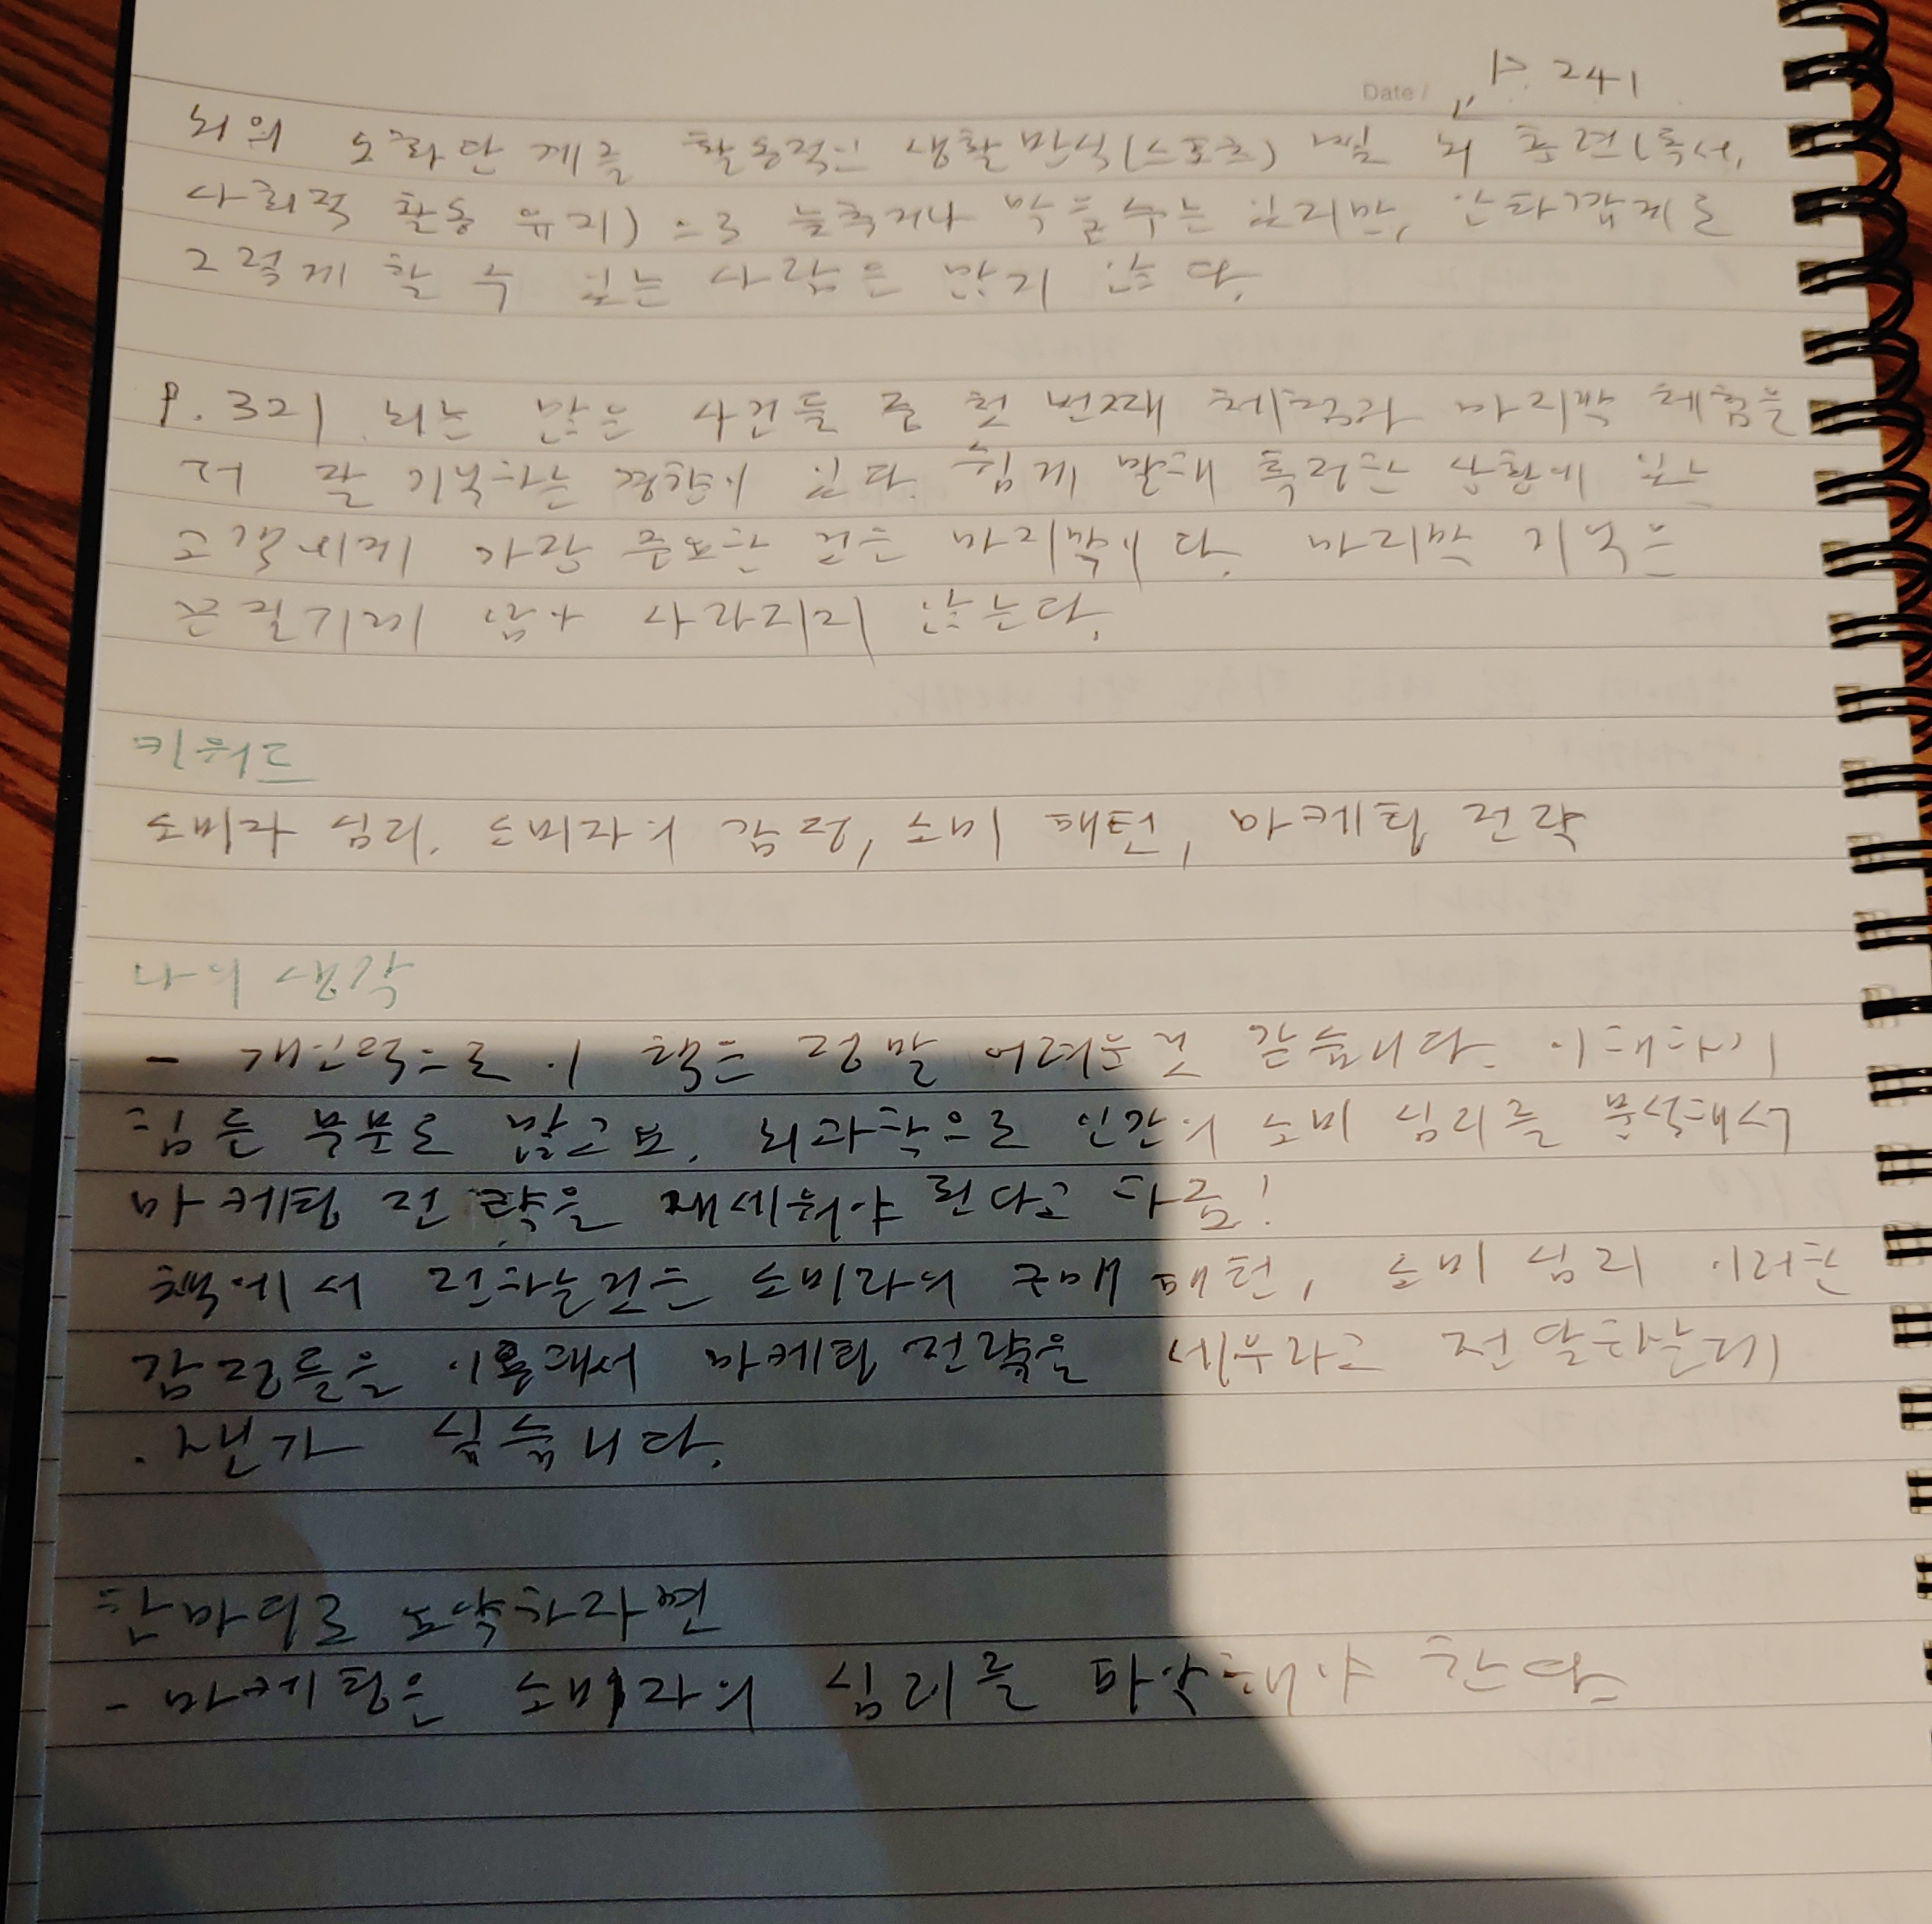 Date / P. 241
뇌의 노화단계를 활동적인 생활방식(스포츠) 및 뇌 훈련(독서,
사회적 활동 유지)으로 늦추거나 막을수는 있지만, 안타깝게도
그렇게 할 수 있는 사람은 많지 않다.
P. 321 뇌는 많은 사건들 중 첫 번째 체험과 마지막 체험을
더 잘 기억하는 경향이 있다. 쉽게 말해 특정한 상황에 있는
고객에게 가장 중요한 건은 마지막이다. 마지막 기억은
끈질기게 남아 사라지지 않는다.
키워드
소비자 심리. 소비자의 감정, 소비 패턴, 마케팅 전략
나의 생각
- 개인적으로 이 책은 정말 어려운것 같습니다. 이해하기
힘든 부분도 많고요. 뇌과학으로 인간의 소비 심리를 분석해서
마케팅 전략을 재세워야 된다고 하줌!
책에서 전하는건은 소비자의 구매 패턴, 소비 심리 이러한
감정들을 이용해서 마케팅 전략을 세우라고 전달하는데
.잰가 싶습니다.
한마디로 요약하라면
- 마케팅은 소비자의 심리를 파악해야 한다.